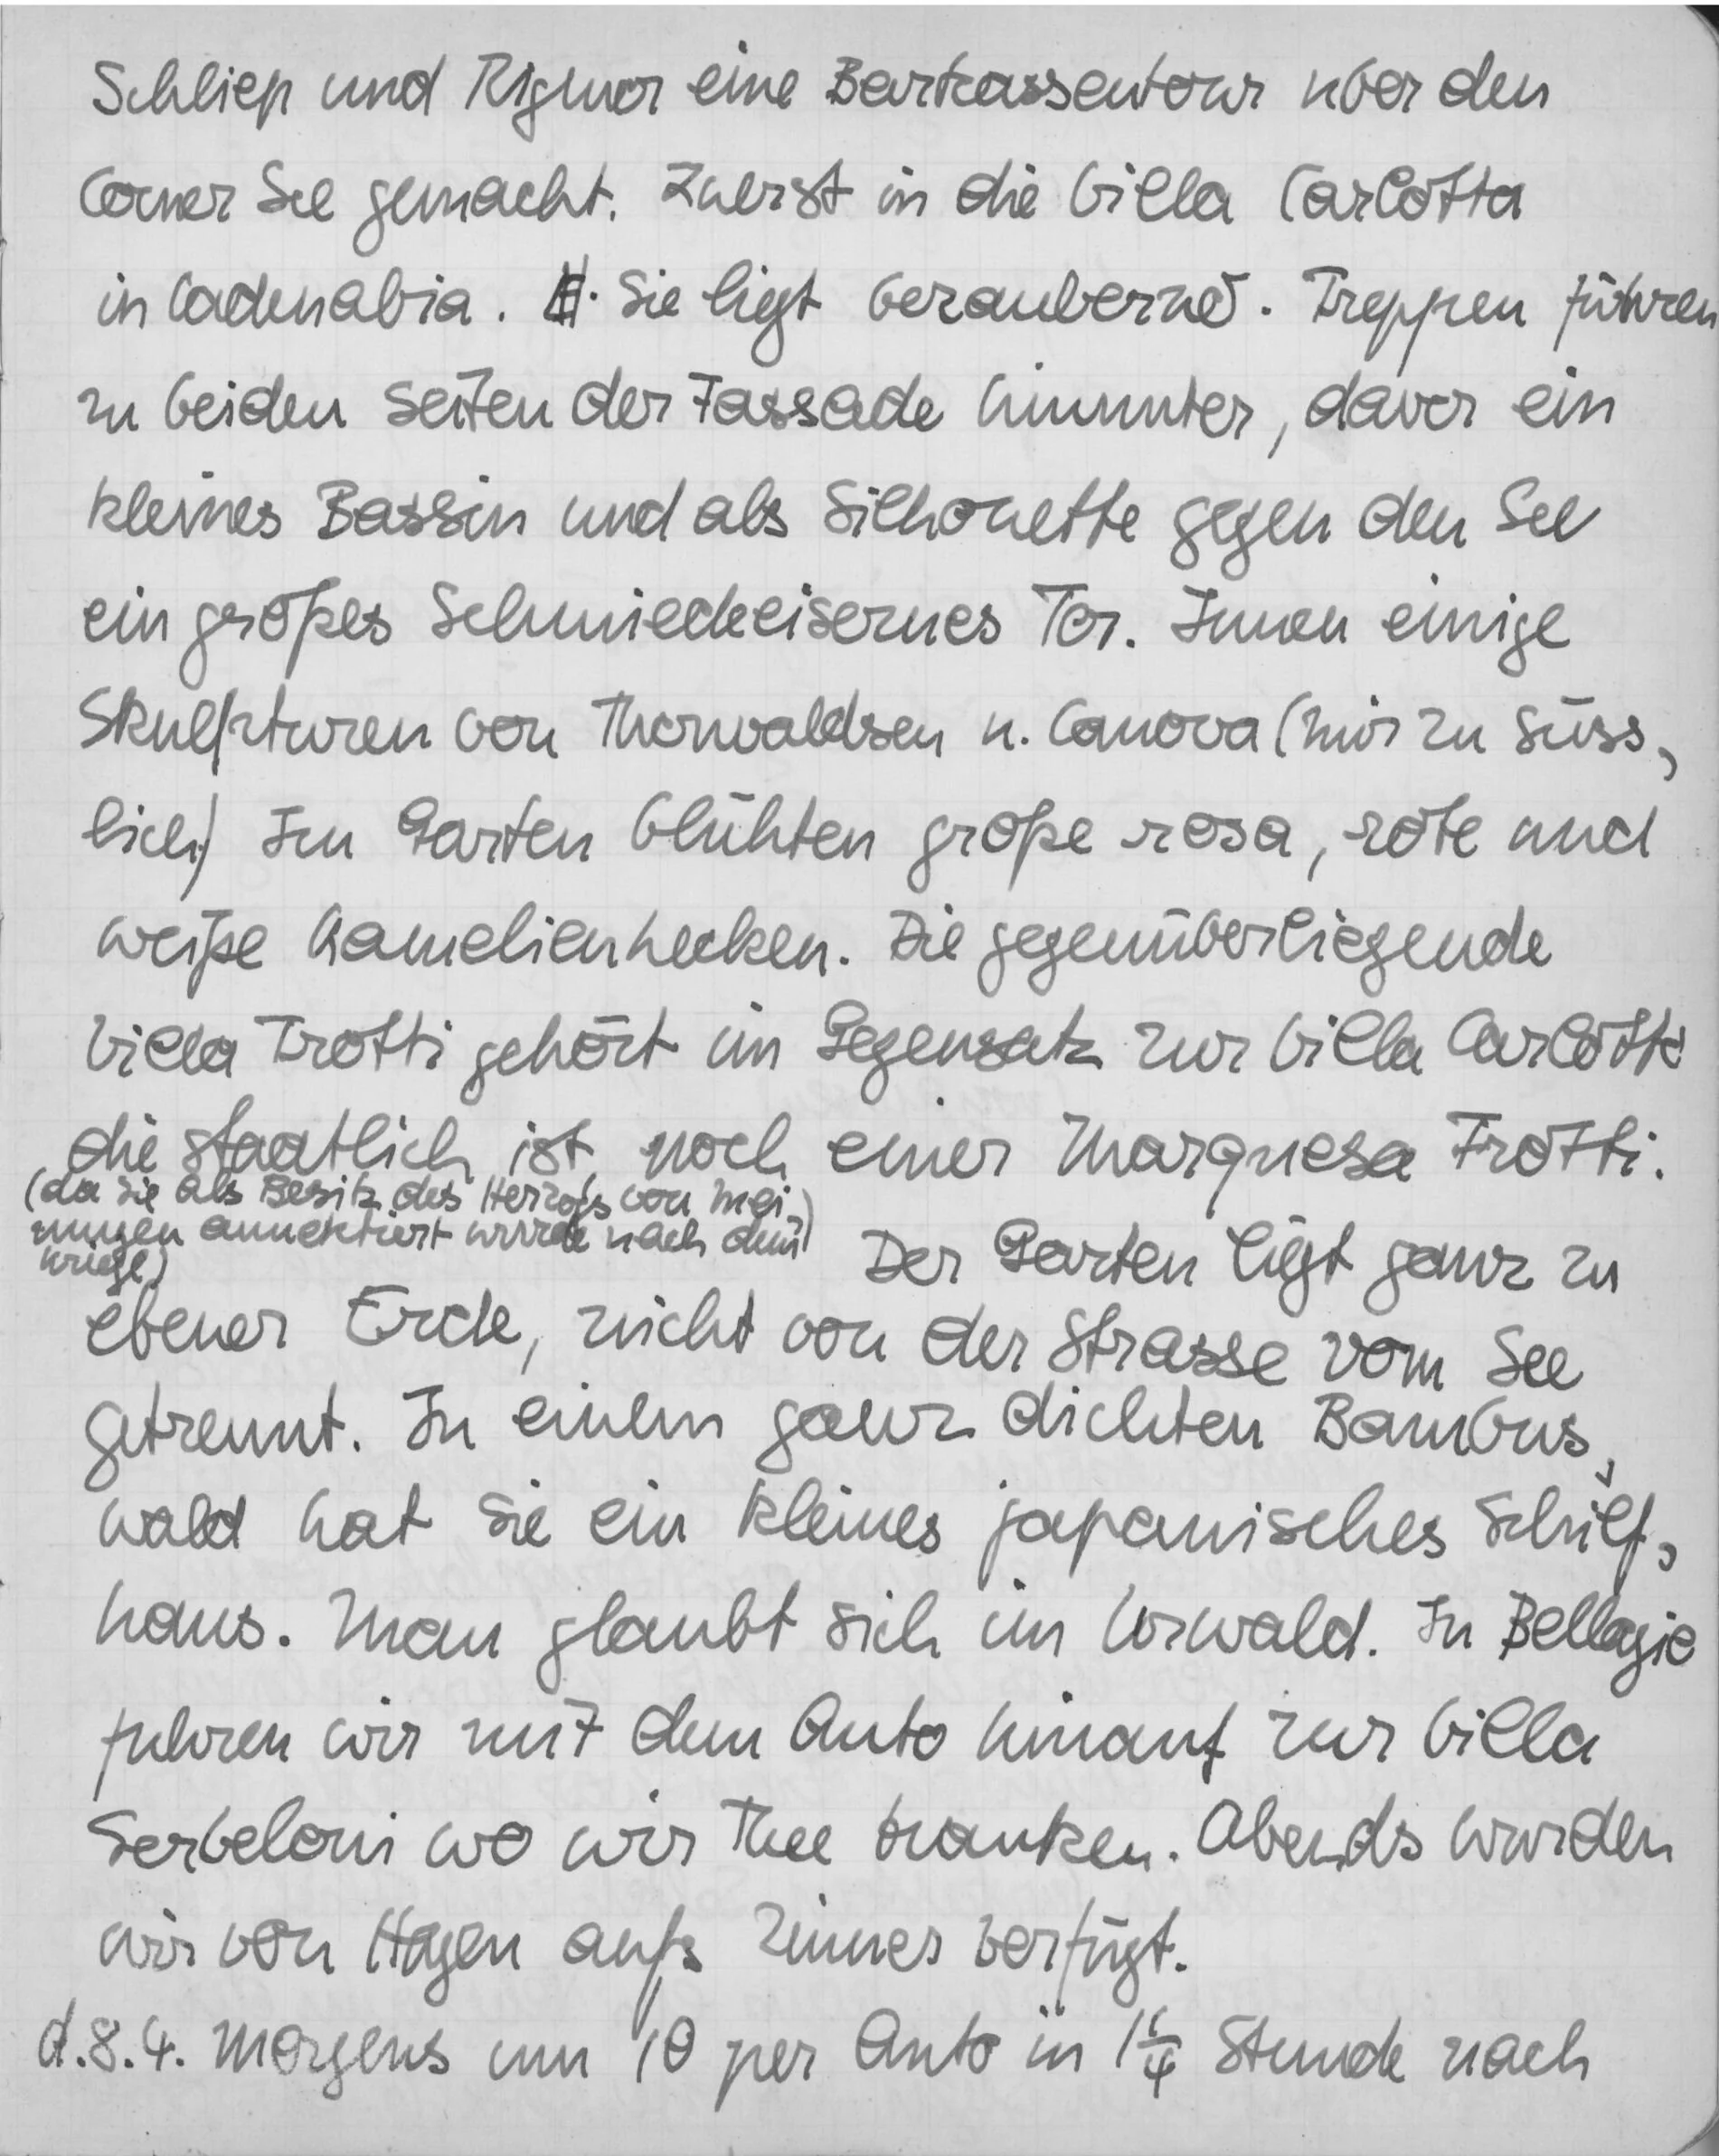 Schliep und Rigmor eine Barkassentour über den
Comer See gemacht. Zuerst in die Villa Carlotta
in Cadenabia. Sie liegt bezaubernd. Treppen führen
zu beiden Seiten der Fassade hinunter, davor ein
kleines Bassin und als Silhouette gegen den See
ein großes Schmiedeeisernes Tor. Innen einige
Skulpturen von Thorwaldsen u. Canova (mir zu süss-
lich) Im Garten blühten große rosa, rote und
weiße Kamelienhecken. Die gegenüberliegende
Villa Trotti gehört im Gegensatz zur Villa Carlotta
die staatlich ist, noch einer Marquesa Trotti.
(da sie als Besitz des Herzogs von Mei-
ningen annektiert wurde nach dem
Kriege)
Der Garten liegt ganz zu
ebener Erde, nicht von der Strasse vom See
getrennt. In einem ganz dichten Bambus-
wald hat sie ein kleines japanisches Schilf-
haus. Man glaubt sich im Urwald. In Bellagio
fuhren wir mit dem Auto hinauf zur Villa
Serbeloni wo wir Thee tranken. Abends wurden
wir von Hagen aufs Zimmer verfügt.
d. 8.4. Morgens um 10 per Auto in 1 1/4 Stunde nach